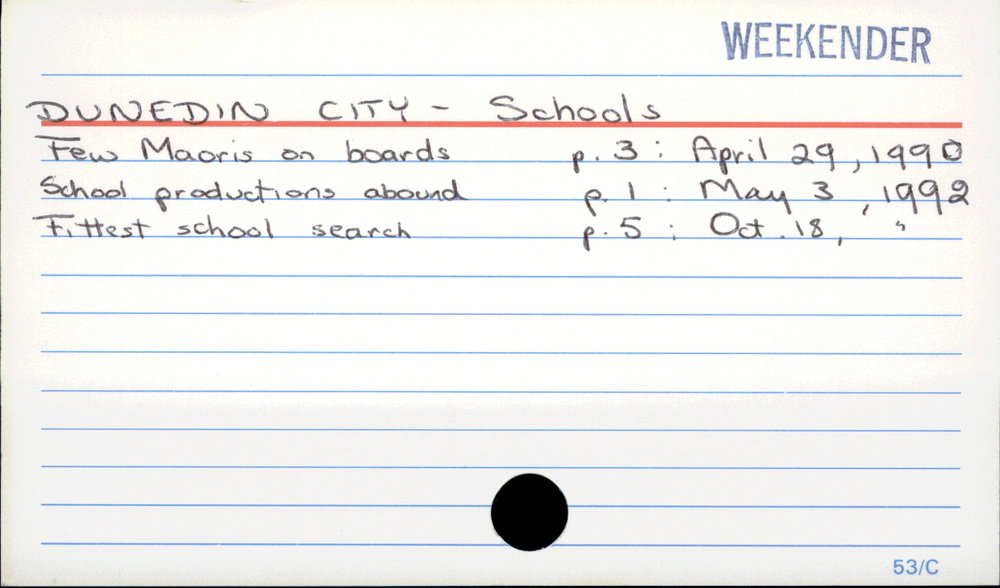 WEEKENDER
DUNEDIN CITY - Schools
Few Maoris on boards p. 3 : April 29, 1990
School productions abound p. 1 : May 3, 1992
Fittest school search p. 5 : Oct. 18, "
53/C